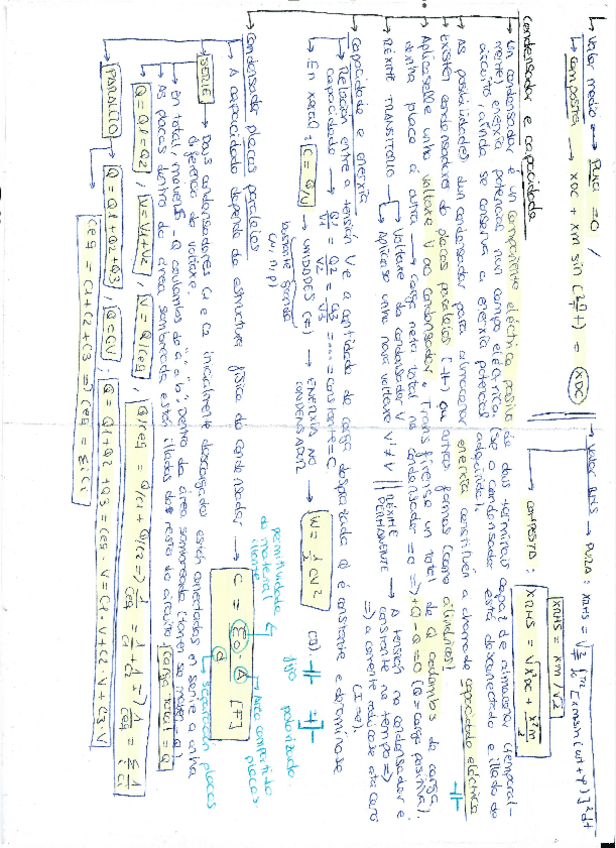 → Valor medio → PURA = 0 /
→ composta → XDC + Xm sin (2π/T t) = XDC
→ Valor RMS → PURA: XRMS =
XRMS = Xm/√2
→ COMPOSTA: XRMS = √X²DC + X²m/2
Condensador e capacidade
→ Un condensador é un compoñente eléctrico pasivo de dous terminais capaz de almacenar (temporal-
mente) enerxía potencial nun campo eléctrico (se o condensador está desconectado e illado do
circuito, aínda se conserva a enerxía potencial adquirida).
→ As posibilidades dun condensador para almacenar enerxía constitúen a chamada capacidade eléctrica
→ Existen condensadores de placas paralelas (⊣⊢) ou outras formas (como cilíndricos)
→ Aplícaselle unha voltaxe V ao condensador. Transfírense un total de Q coulombs de carga
dunha placa á outra → carga neta total no condensador = 0 => +Q - Q = 0 (Q = carga positiva).
→ RÉXIME TRANSITORIO → Voltaxe do condensador V
→ Aplícase unha nova voltaxe V' ≠ V
RÉXIME PERMANENTE → A tensión no condensador é
constante no tempo =>
=> a corrente redúcese ata cero
(I = 0).
Capacidade e enerxía
→ Relación entre a tensión V e a cantidade de carga desprazada Q é constante e denomínase
capacidade → Q1/V1 = Q2/V2 = Q3/V3 = ... = constante = C
→ En xeral: C = Q/V → UNIDADES (F) → ENERXÍA NO CONDENSADOR → W = 1/2 CV² (J).
bastante grande
(μ, n, p)
fijo
polarizado.
Condensador placas paralelas
→ A capacidade depende da estructura física do condensador → C = ε0 · A / d [F]
permitividade
do material
Área compartida
placas.
separación placas
→ SERIE → Dous condensadores C1 e C2 inicialmente descargados están conectados en serie a unha
diferenza de voltaxe.
→ En total, movense -Q coulombs de "a" a "b"; dentro da área sombreada
→ As placas dentro da área sombreada están illadas do resto do circuíto (carga total = 0)
→ Q = Q1 = Q2, V = V1 + V2, V = Q/Ceq, Q/Ceq = Q/C1 + Q/C2 => 1/Ceq = 1/C1 + 1/C2 => 1/Ceq = Σ 1/Ci
→ PARALELO → Q = Q1 + Q2 + Q3, Q = CV; Q = Q1 + Q2 + Q3 = Ceq · V = C1 · V + C2 · V + C3 · V
Ceq = C1 + C2 + C3 => Ceq = Σ Ci